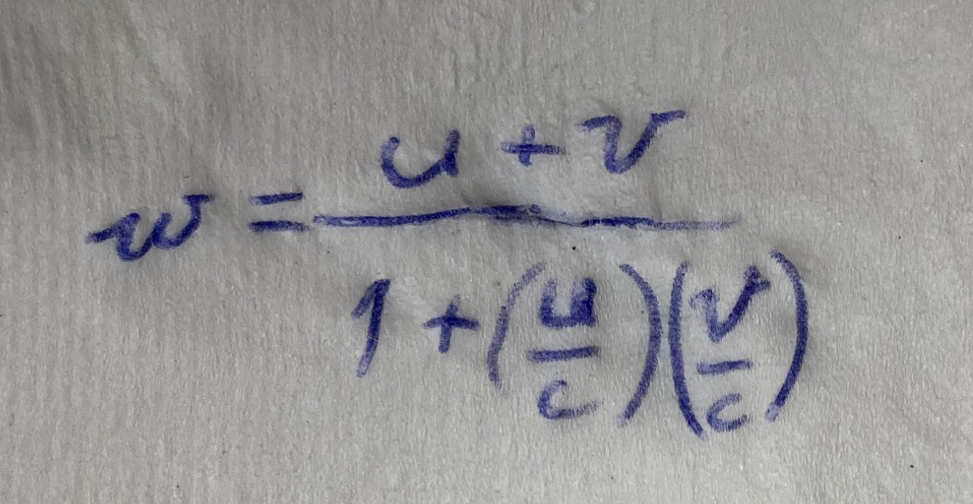 w = \frac{u + v}{1 + \left(\frac{u}{c}\right)\left(\frac{v}{c}\right)}